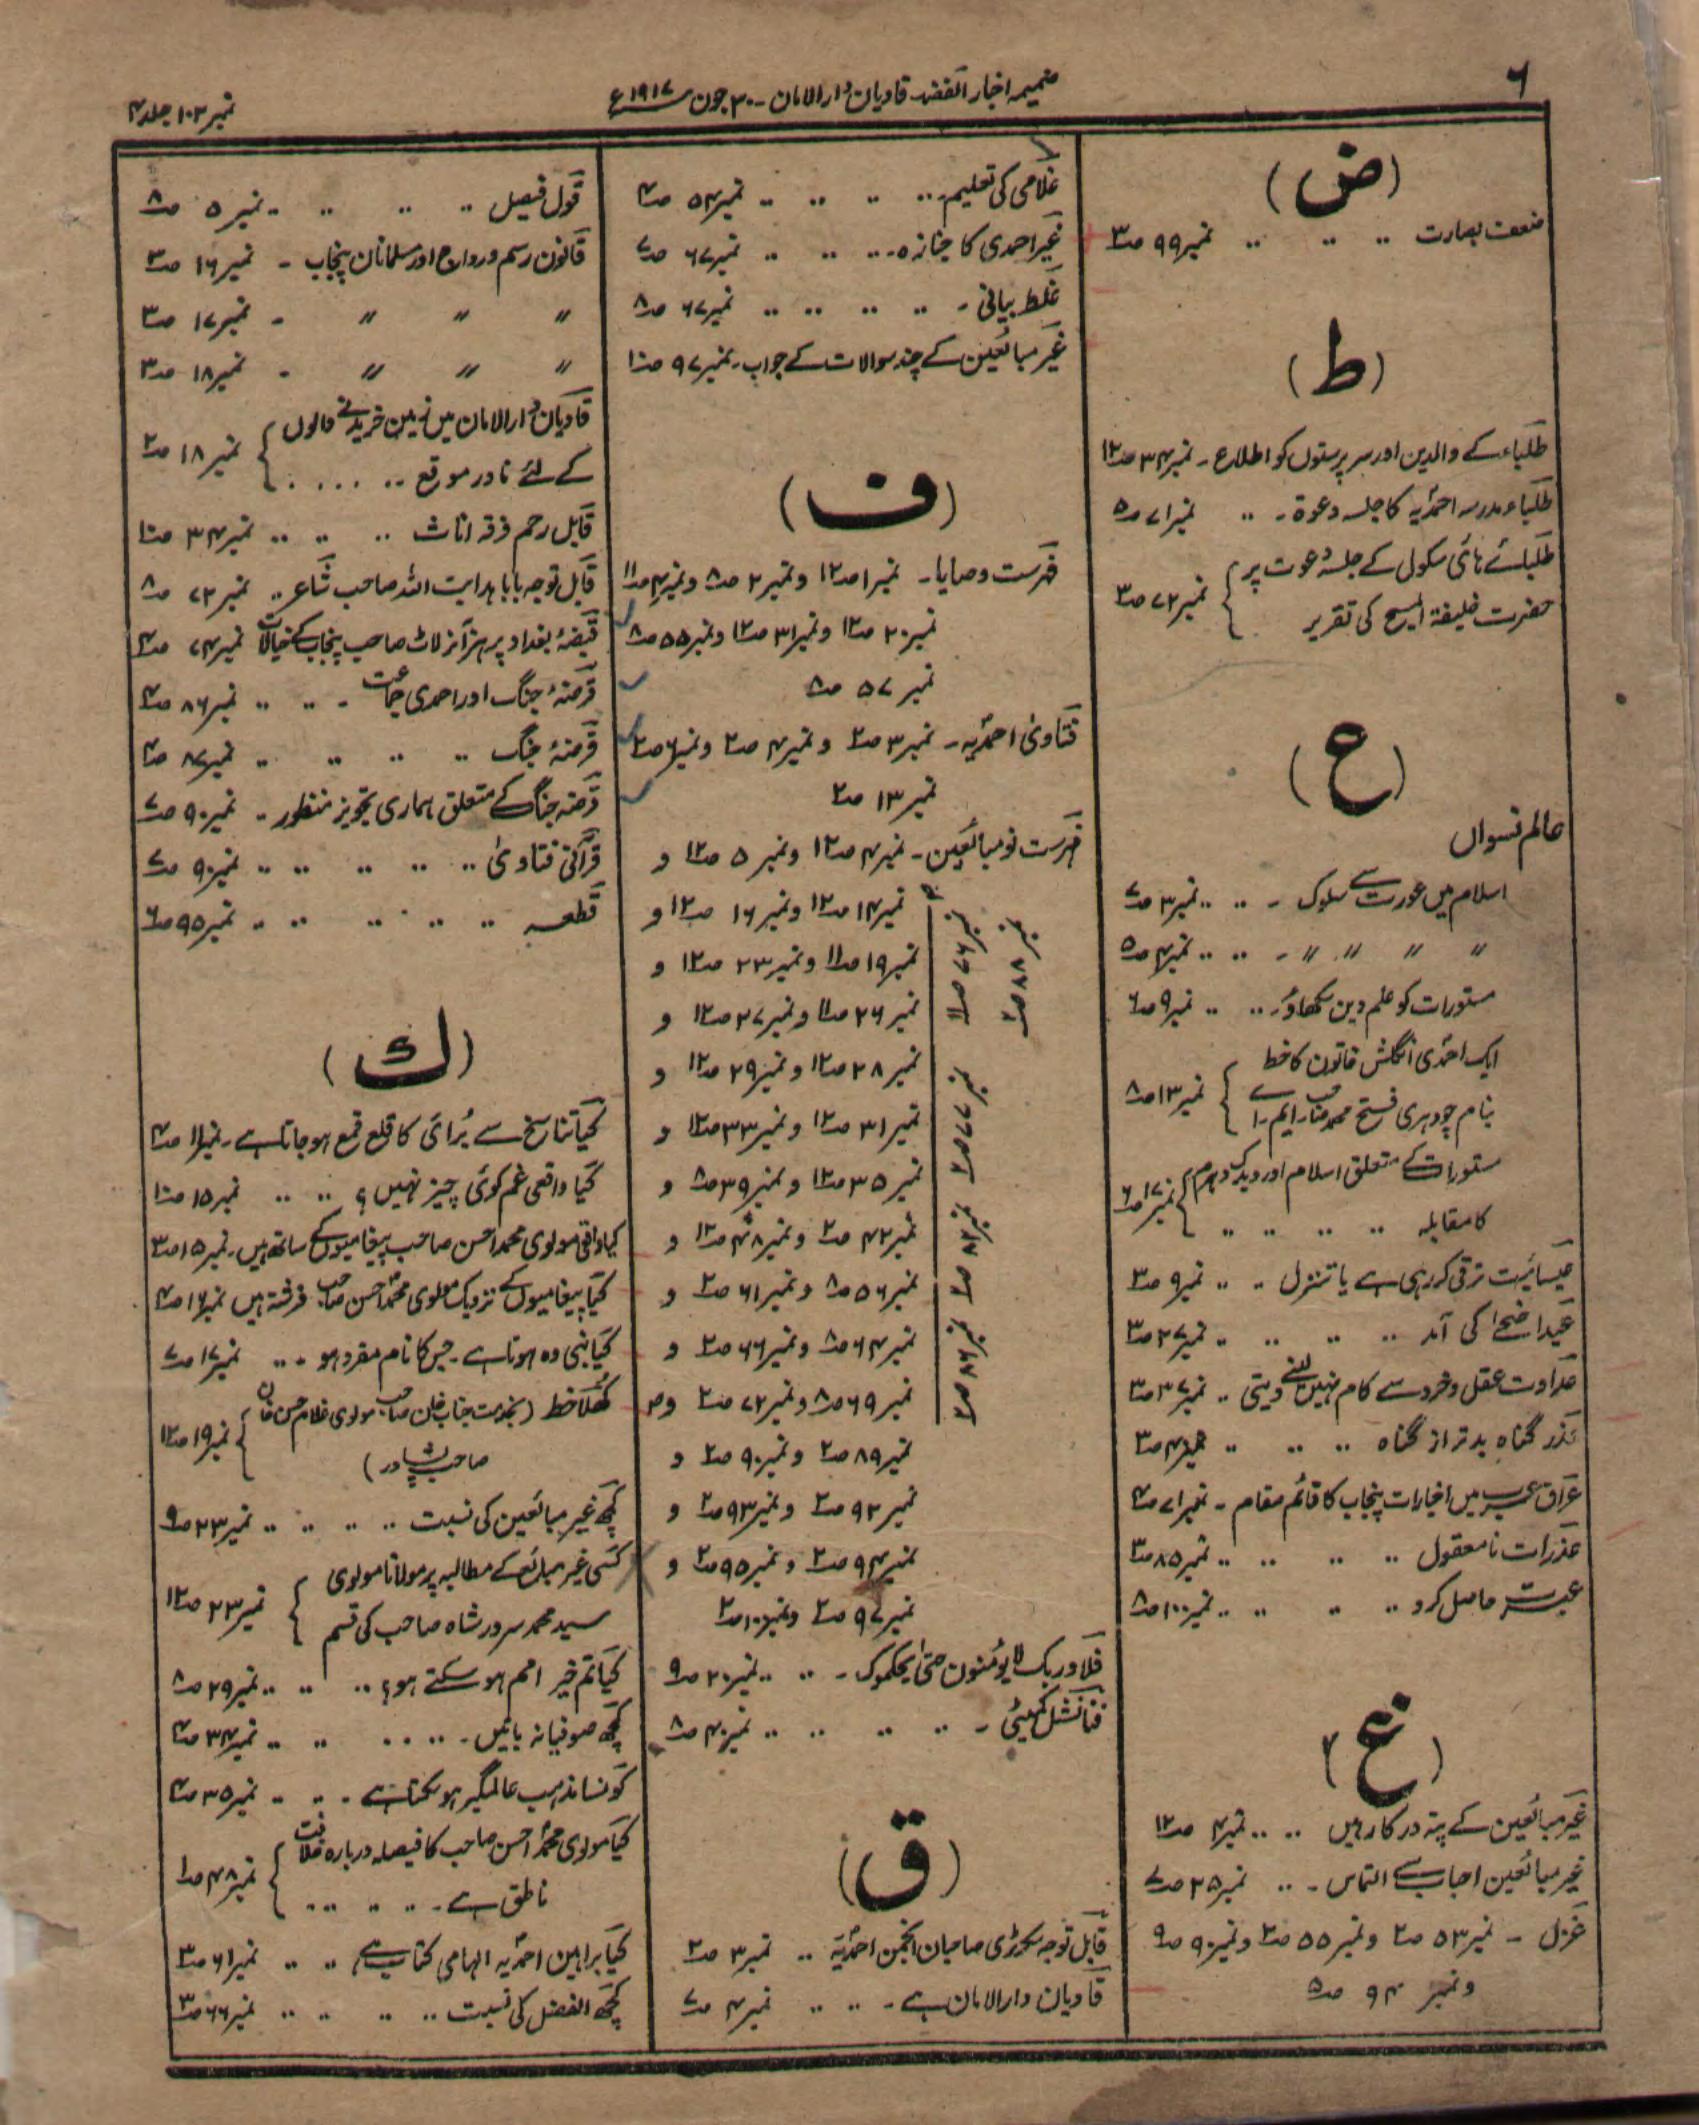 ۶
ضمیمہ اخبار الفضل قادیان دارالامان - ۳۰ جون ۱۹۱۷ء
نمبر ۱۰۲ جلد ۴
(ض)
ضعف بصارت .. .. .. نمبر ۹۹ صـ۳
(ط)
طلباء کے والدین اور سرپرستوں کو اطلاع - نمبر ۳۴ صـ۱۲
طلباء مدرسہ احمدیہ کا جلسہ دعوۃ - .. نمبر ۷۱ صـ۵
طلبائے ہائی سکول کے جلسہ دعوت پر
حضرت خلیفۃ المسیح کی تقریر } نمبر ۷۲ صـ۳
(ع)
عالم نسواں
اسلام میں عورت سے سلوک - .. .. نمبر ۳ صـ۷
〃 〃 〃 〃 - .. .. نمبر ۴ صـ۵
مستورات کو علم دین سکھاؤ - .. .. نمبر ۹ صـ۶
ایک احمدی انگلش خاتون کا خط
بنام چودہری فتح محمد صاحب ایم اے } نمبر ۱۳ صـ۸
مستورات کے متعلق اسلام اور ویدک دہرم
کا مقابلہ .. .. .. .. } نمبر ۱۷ صـ۶
عیسائیت ترقی کر رہی ہے یا تنزل .. .. نمبر ۹ صـ۳
عید اضحٰی کی آمد .. .. .. .. نمبر ۲۷ صـ۳
عداوت عقل و خرد سے کام نہیں لینے دیتی .. نمبر ۳۷ صـ۳
عذر گناہ بدتر از گناہ .. .. .. صـ۳
عراق عرب میں اخبارات پنجاب کا قائم مقام - نمبر ۷۱ صـ۴
عذرات نامعقول .. .. .. .. نمبر ۸۵ صـ۳
عبرت حاصل کرو .. .. .. .. نمبر ۱۰۰ صـ۸
(غ)
غیر مبائعین کے پتہ درکار ہیں .. .. نمبر ۴ صـ۱۲
غیر مبائعین احباب سے التماس - .. نمبر ۲۵ صـ۷
غزل - نمبر ۵۳ صـ۲ ونمبر ۵۵ صـ۲ ونمبر ۹۰ صـ۹
ونمبر ۹۴ صـ۵
غلامی کی تعلیم - .. .. .. .. نمبر ۵۴ صـ۴
غیر احمدی کا جنازہ - .. .. .. نمبر ۶۷ صـ۷
غلط بیانی - .. .. .. .. نمبر ۶۷ صـ۸
غیر مبائعین کے چند سوالات کے جواب - نمبر ۹۷ صـ۱۰
(ف)
فہرست وصایا - نمبر ۱ صـ۱۲ ونمبر ۲ صـ۸ ونمبر ۴ صـ۱۱
نمبر ۲۰ صـ۱۲ ونمبر ۳۱ صـ۱۲ ونمبر ۵۵ صـ۸
نمبر ۵۷ صـ۸
فتاویٰ احمدیہ - نمبر ۳ صـ۲ ونمبر ۴ صـ۲ ونمبر ۶ صـ۲
نمبر ۱۳ صـ۲
فہرست نومبائعین - نمبر ۴ صـ۱۲ ونمبر ۵ صـ۱۲ و
نمبر ۱۴ صـ۱۲ ونمبر ۱۶ صـ۱۲ و
نمبر ۱۹ صـ۱۱ ونمبر ۲۳ صـ۱۲ و
نمبر ۲۶ صـ۱۱ ونمبر ۲۷ صـ۱۲ و
نمبر ۲۸ صـ۱۲ ونمبر ۲۹ صـ۱۲ و
نمبر ۳۱ صـ۱۲ ونمبر ۳۳ صـ۱۲ و
نمبر ۳۵ صـ۱۲ ونمبر ۳۹ صـ۸ و
نمبر ۴۲ صـ۲ ونمبر ۴۸ صـ۱۲ و
نمبر ۵۶ صـ۸ ونمبر ۶۱ صـ۲ و
نمبر ۶۴ صـ۸ ونمبر ۶۶ صـ۲ و
نمبر ۶۹ صـ۸ ونمبر ۷۲ صـ۲ و
نمبر ۸۹ صـ۲ ونمبر ۹۰ صـ۲ و
نمبر ۹۲ صـ۲ ونمبر ۹۳ صـ۲ و
نمبر ۹۴ صـ۲ ونمبر ۹۵ صـ۲ و
نمبر ۹۷ صـ۲ ونمبر ۱۰۰ صـ۲
نمبر ۷۶ صـ۱۱ نمبر ۷۷ صـ۲ نمبر ۸۲ صـ۲ نمبر ۸۶ صـ۲
نمبر ۸۸ صـ۲
فلا وربک لا یؤمنون حتی یحکموک - .. .. نمبر ۲۰ صـ۹
فنانشل کمیٹی - .. .. .. .. نمبر ۴۰ صـ۸
(ق)
قابل توجہ سکرٹری صاحبان انجمن احمدیہ .. نمبر ۳ صـ۲
قادیان دارالامان ہے - .. .. نمبر ۴ صـ۷
قول فیصل .. .. .. .. نمبر ۵ صـ۸
قانون رسم ورواج اور مسلمانان پنجاب - نمبر ۱۶ صـ۳
〃 〃 〃 - نمبر ۱۷ صـ۳
〃 〃 〃 - نمبر ۱۸ صـ۳
قادیان دارالامان میں زمین خریدنے والوں
کے لئے نادر موقع .. .... } نمبر ۱۸ صـ۲
قابل رحم فرقہ اناث .. .. .. نمبر ۳۴ صـ۱۰
قابل توجہ بابا ہدایت اللہ صاحب شاعر .. نمبر ۷۲ صـ۸
قبضۂ بغداد پر ہز آنر لاٹ صاحب پنجاب کے خیالات نمبر ۷۴ صـ۴
قرضۂ جنگ اور احمدی جماعت - .. .. نمبر ۸۶ صـ۴
قرضۂ جنگ .. .. .. .. نمبر ۸۷ صـ۴
قرضہ جنگ کے متعلق ہماری تجویز منظور - نمبر ۹۰ صـ۷
قرآنی فتاویٰ .. .. .. .. .. نمبر ۹۰ صـ۷
قطعہ .. .. .. .. .. نمبر ۹۵ صـ۶
(ک)
کیا تناسخ سے بُرائی کا قلع قمع ہو جاتا ہے - نمبر ۱۱ صـ۴
کیا واقعی غم کوئی چیز نہیں؟ .. .. نمبر ۱۵ صـ۱۰
کیا واقعی مولوی محمد احسن صاحب پیغامیوں کے ساتھ ہیں - نمبر ۱۵ صـ۳
کیا پیغامیوں کے نزدیک مولوی محمد احسن صاحب فرشتہ ہیں نمبر ۱۶ صـ۴
کیا نبی وہ ہوتا ہے - جس کا نام مفرد ہو - .. نمبر ۱۷ صـ۷
کُھلا خط (بخدمت جناب خان صاحب مولوی غلام حسن خان
صاحب پشاور) } نمبر ۱۹ صـ۱۲
کچھ غیر مبائعین کی نسبت .. .. .. .. نمبر ۲۳ صـ۹
کسی غیر مبائع کے مطالبہ پر مولانا مولوی
سید محمد سرور شاہ صاحب کی قسم } نمبر ۲۳ صـ۱۲
کیا تم خیر امم ہو سکتے ہو؟ .. .. .. نمبر ۲۹ صـ۸
کچھ صوفیانہ باتیں - .. .. .. .. نمبر ۳۴ صـ۴
کونسا مذہب عالمگیر ہو سکتا ہے - .. .. نمبر ۳۵ صـ۴
کیا مولوی محمد احسن صاحب کا فیصلہ دربارہ خلافت
ناطق ہے - .. .. ... } نمبر ۴۸ صـ۱۰
کیا براہین احمدیہ الہامی کتاب ہے .. .. نمبر ۶۱ صـ۳
کچھ الفضل کی نسبت .. .. .. .. نمبر ۶۶ صـ۳